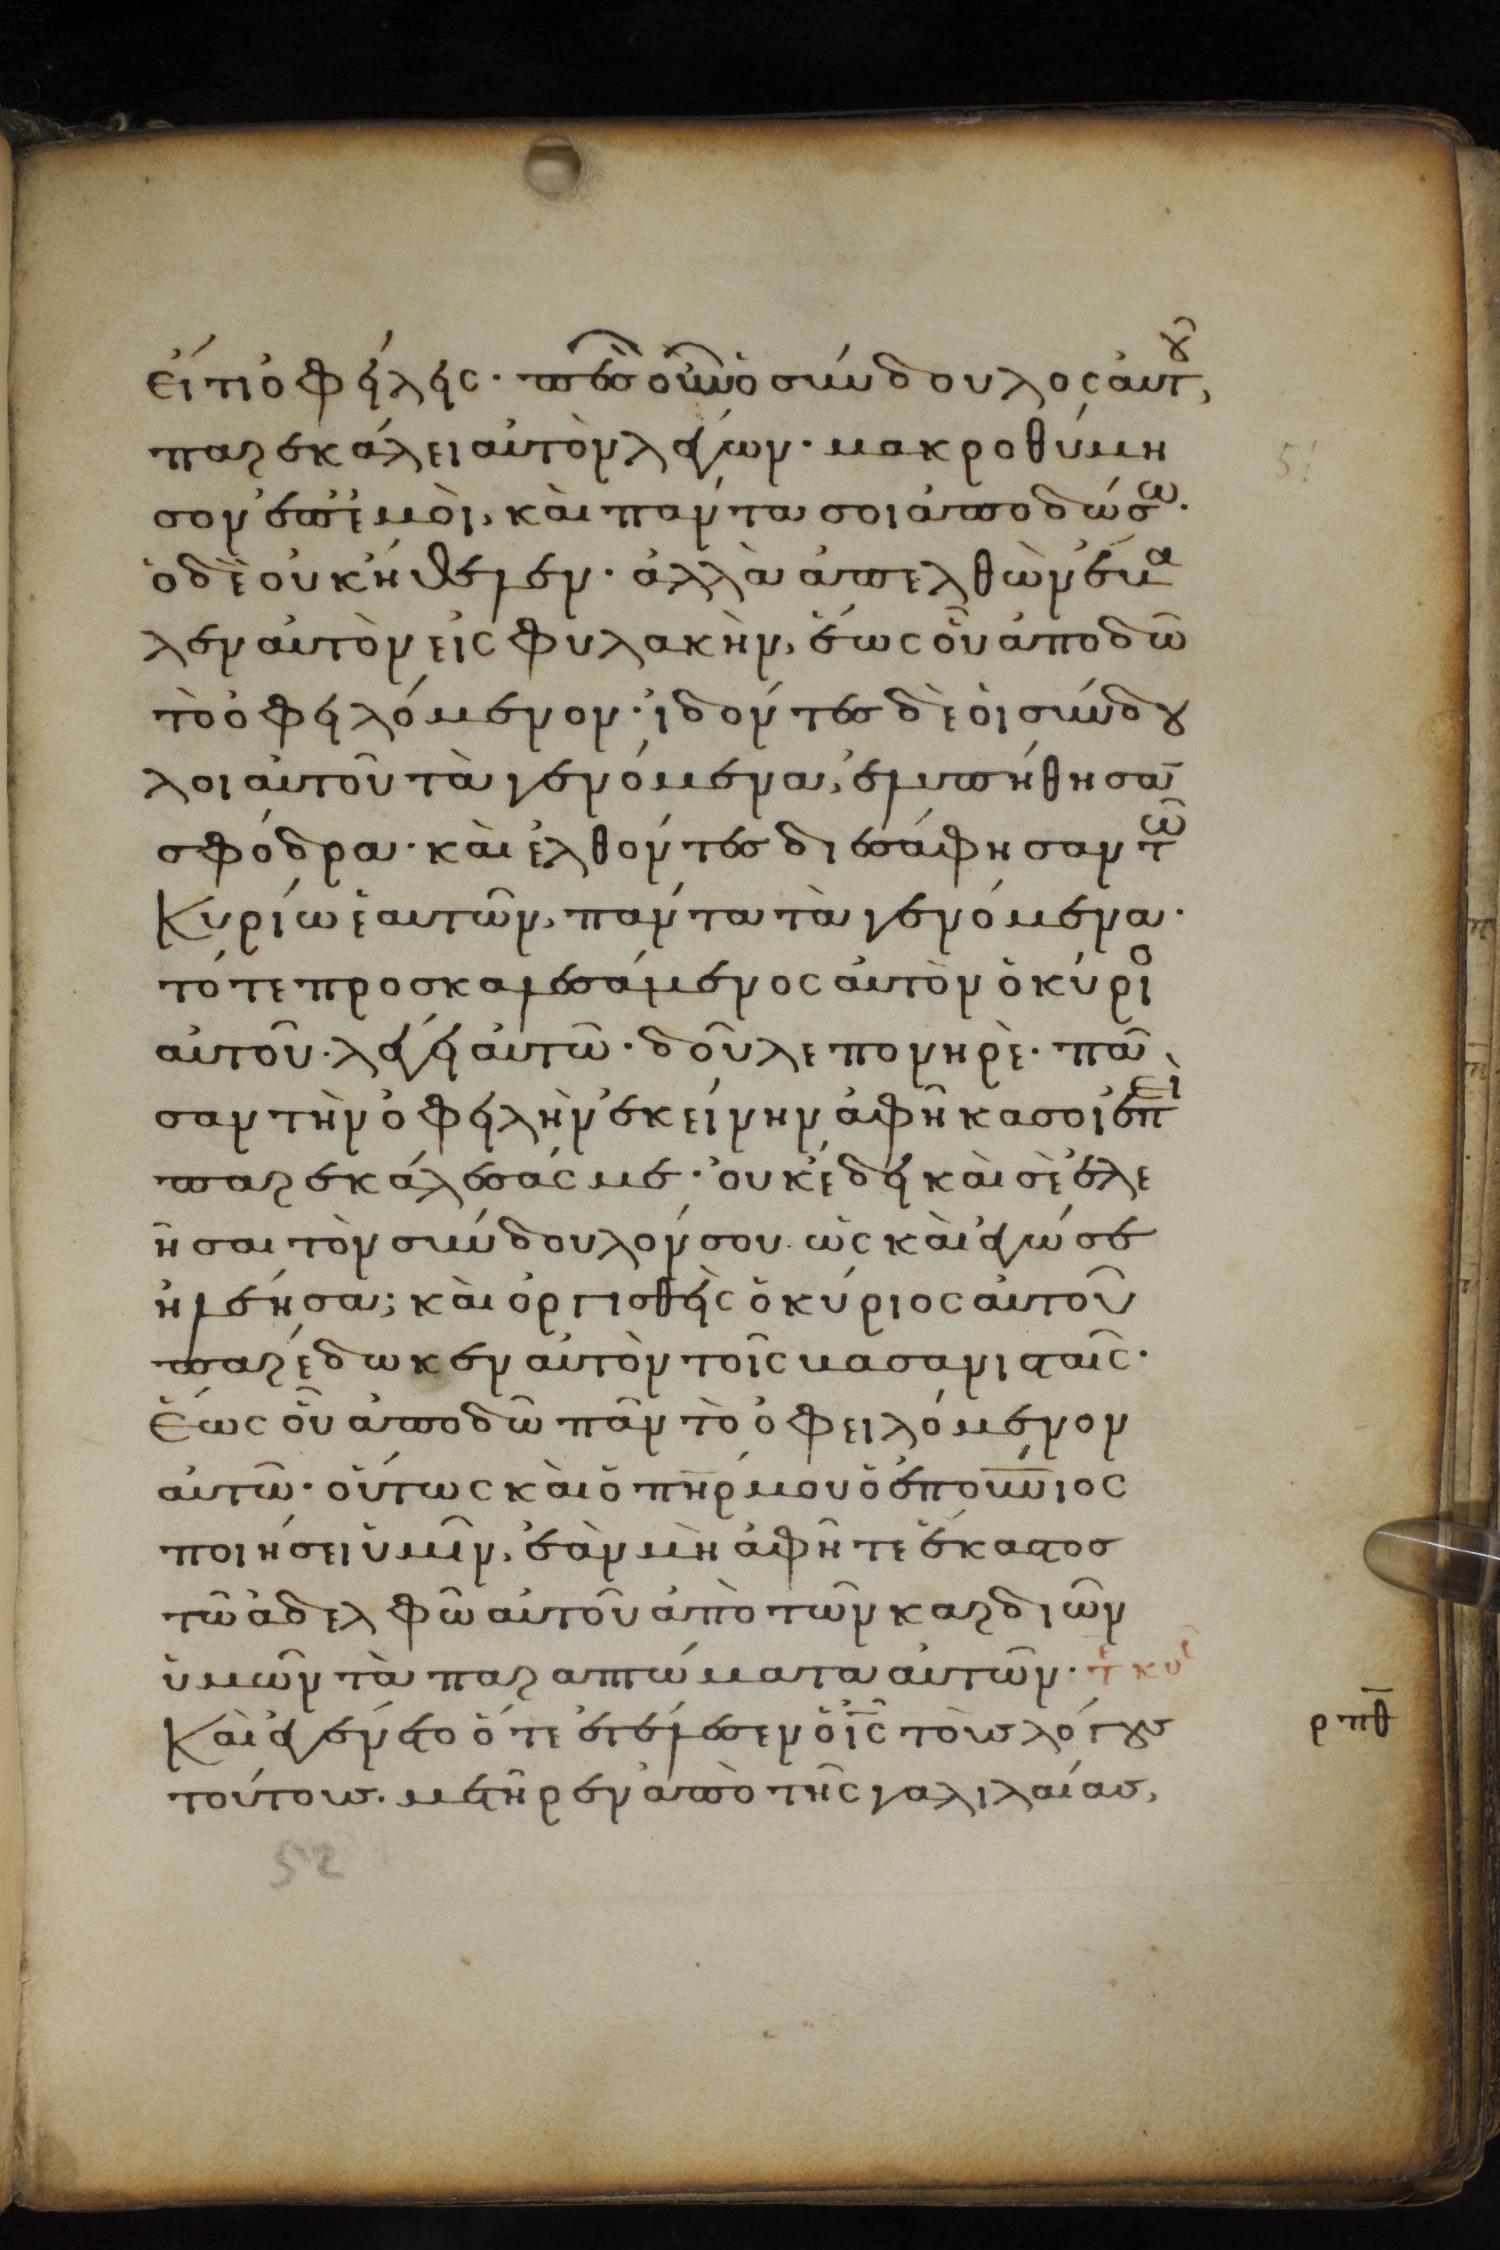 εἴ τι ὀφείλεις· πεσὼν οὖν ὁ σύνδουλος αὐτοῦ,
παρεκάλει αὐτὸν λέγων· μακροθύμη
σον ἐπ' ἐμοὶ, καὶ πάντα σοι ἀποδώσω·
ὁ δὲ οὐκ ἤθελεν· ἀλλὰ ἀπελθὼν ἔβα
λεν αὐτὸν εἰς φυλακὴν, ἕως οὗ ἀποδῶ
τὸ ὀφειλόμενον· ἰδόντες δὲ οἱ σύνδου
λοι αὐτοῦ τὰ γενόμενα, ἐλυπήθησαν
σφόδρα· καὶ ἐλθόντες διεσάφησαν τῶ
Κυρίω ἑαυτῶν, πάντα τὰ γενόμενα·
τότε προσκαλεσάμενος αὐτὸν ὁ κύριος
αὐτοῦ· λέγει αὐτῶ· δοῦλε πονηρὲ· πᾶ
σαν τὴν ὀφειλὴν ἐκείνην ἀφῆκα σοι ἐπεὶ
παρεκάλεσάς με· οὐκ ἔδει καὶ σὲ ἐλε
ῆσαι τὸν σύνδουλόν σου· ὡς καὶ ἐγώ σε
ἠλέησα; καὶ ὀργισθεὶς ὁ κύριος αὐτοῦ
παρέδωκεν αὐτὸν τοῖς βασανισταῖς·
Ἕως οὗ ἀποδῶ πᾶν τὸ ὀφειλόμενον
αὐτῶ· οὕτως καὶ ὁ πη̅ρ μου ὁ ἐπουν̅ιος
ποιήσει ὑμῖν, ἐὰν μὴ ἀφῆτε ἕκαστος
τῶ ἀδελφῶ αὐτοῦ ἀπὸ τῶν καρδιῶν
ὑμῶν τὰ παραπτώματα αὐτῶν·
Καὶ ἐγένετο ὅτε ἐτέλεσεν ὁ ι̅ς τοὺς λόγους
τούτους· μετῆρεν ἀπὸ τῆς γαλιλαίας,
ρπθ
52
51